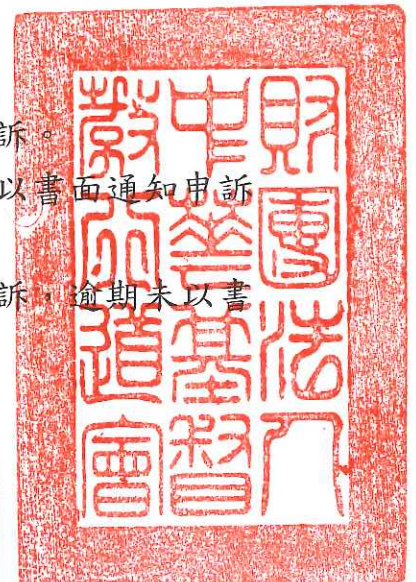 訴。
以書面通知申訴
訴，逾期未以書
財團法人
中華基督
教行道會